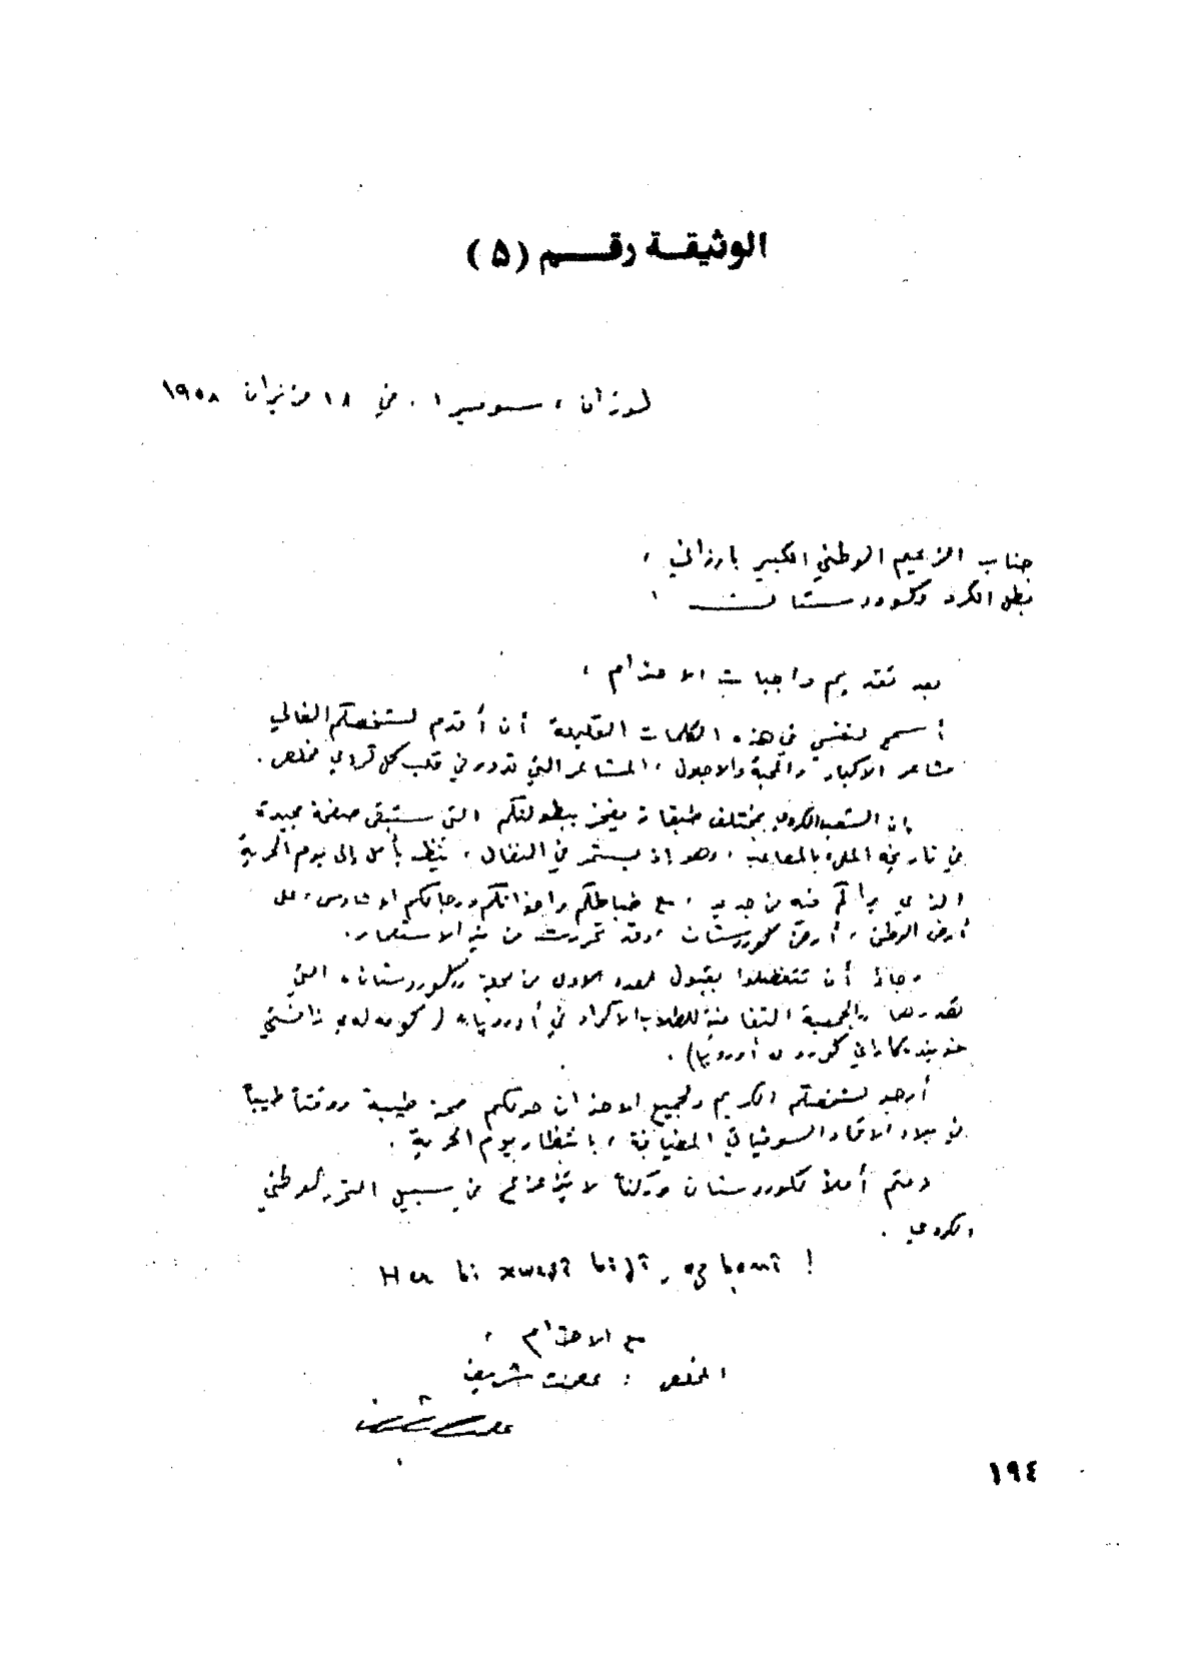 الوثيقة رقم (٥)
لوزان ، سويسرا . في ١٨ حزيران ١٩٥٨
جناب الزعيم الوطني الكبير بارزاني ،
بطل الكرد وكوردستان ،
بعد تقديم واجبات الاحترام ،
أسمح لنفسي في هذه الكلمات القليلة أن أقدم لشخصكم الغالي
مشاعر الاكبار والمحبة والاجلال ، المشاعر التي تدور في قلب كل كردي مخلص .
إن الشعب الكردي بمختلف طبقاته يفخر ببطولتكم التي ستبقى صفحة مجيدة
في تاريخه الملئ بالمصاعب ، وهو إذ يستمر في النضال ، ينظر بأمل إلى يوم الحرية
الذي يراكم فيه من جديد ، مع ضباطكم واخوانكم ورجالكم الاشاوس ، على
أرض الوطن ، أرض كوردستان وقد تحررت من نير الاستعمار .
رجائي أن تتفضلوا بقبول العدد الاول من مجلة «كوردستان» التي
تصدرها «الجمعية الثقافية للطلاب الاكراد في أوروپا» (كومه له ى زانستي
خويندكاراني كورد له أوروپا) .
أرجو لشخصكم الكريم ولجميع الاخوان حولكم صحة طيبة ووقتاً طيباً
في بلاد الاتحاد السوفياتي المضيافة ، بانتظار يوم الحرية .
دمتم أملاً لكوردستان وركناً لا يتزعزع في سبيل التحرر الوطني
الكردي .
Her bi xweşî bijî, ey hemî !
مع الاحترام ،
المخلص : عصمت شريف
١٩٤